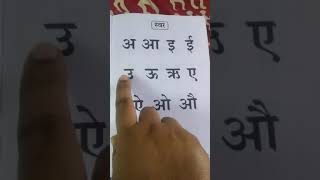 स्वर
अ आ इ ई
उ ऊ ऋ ए
ऐ ओ औ